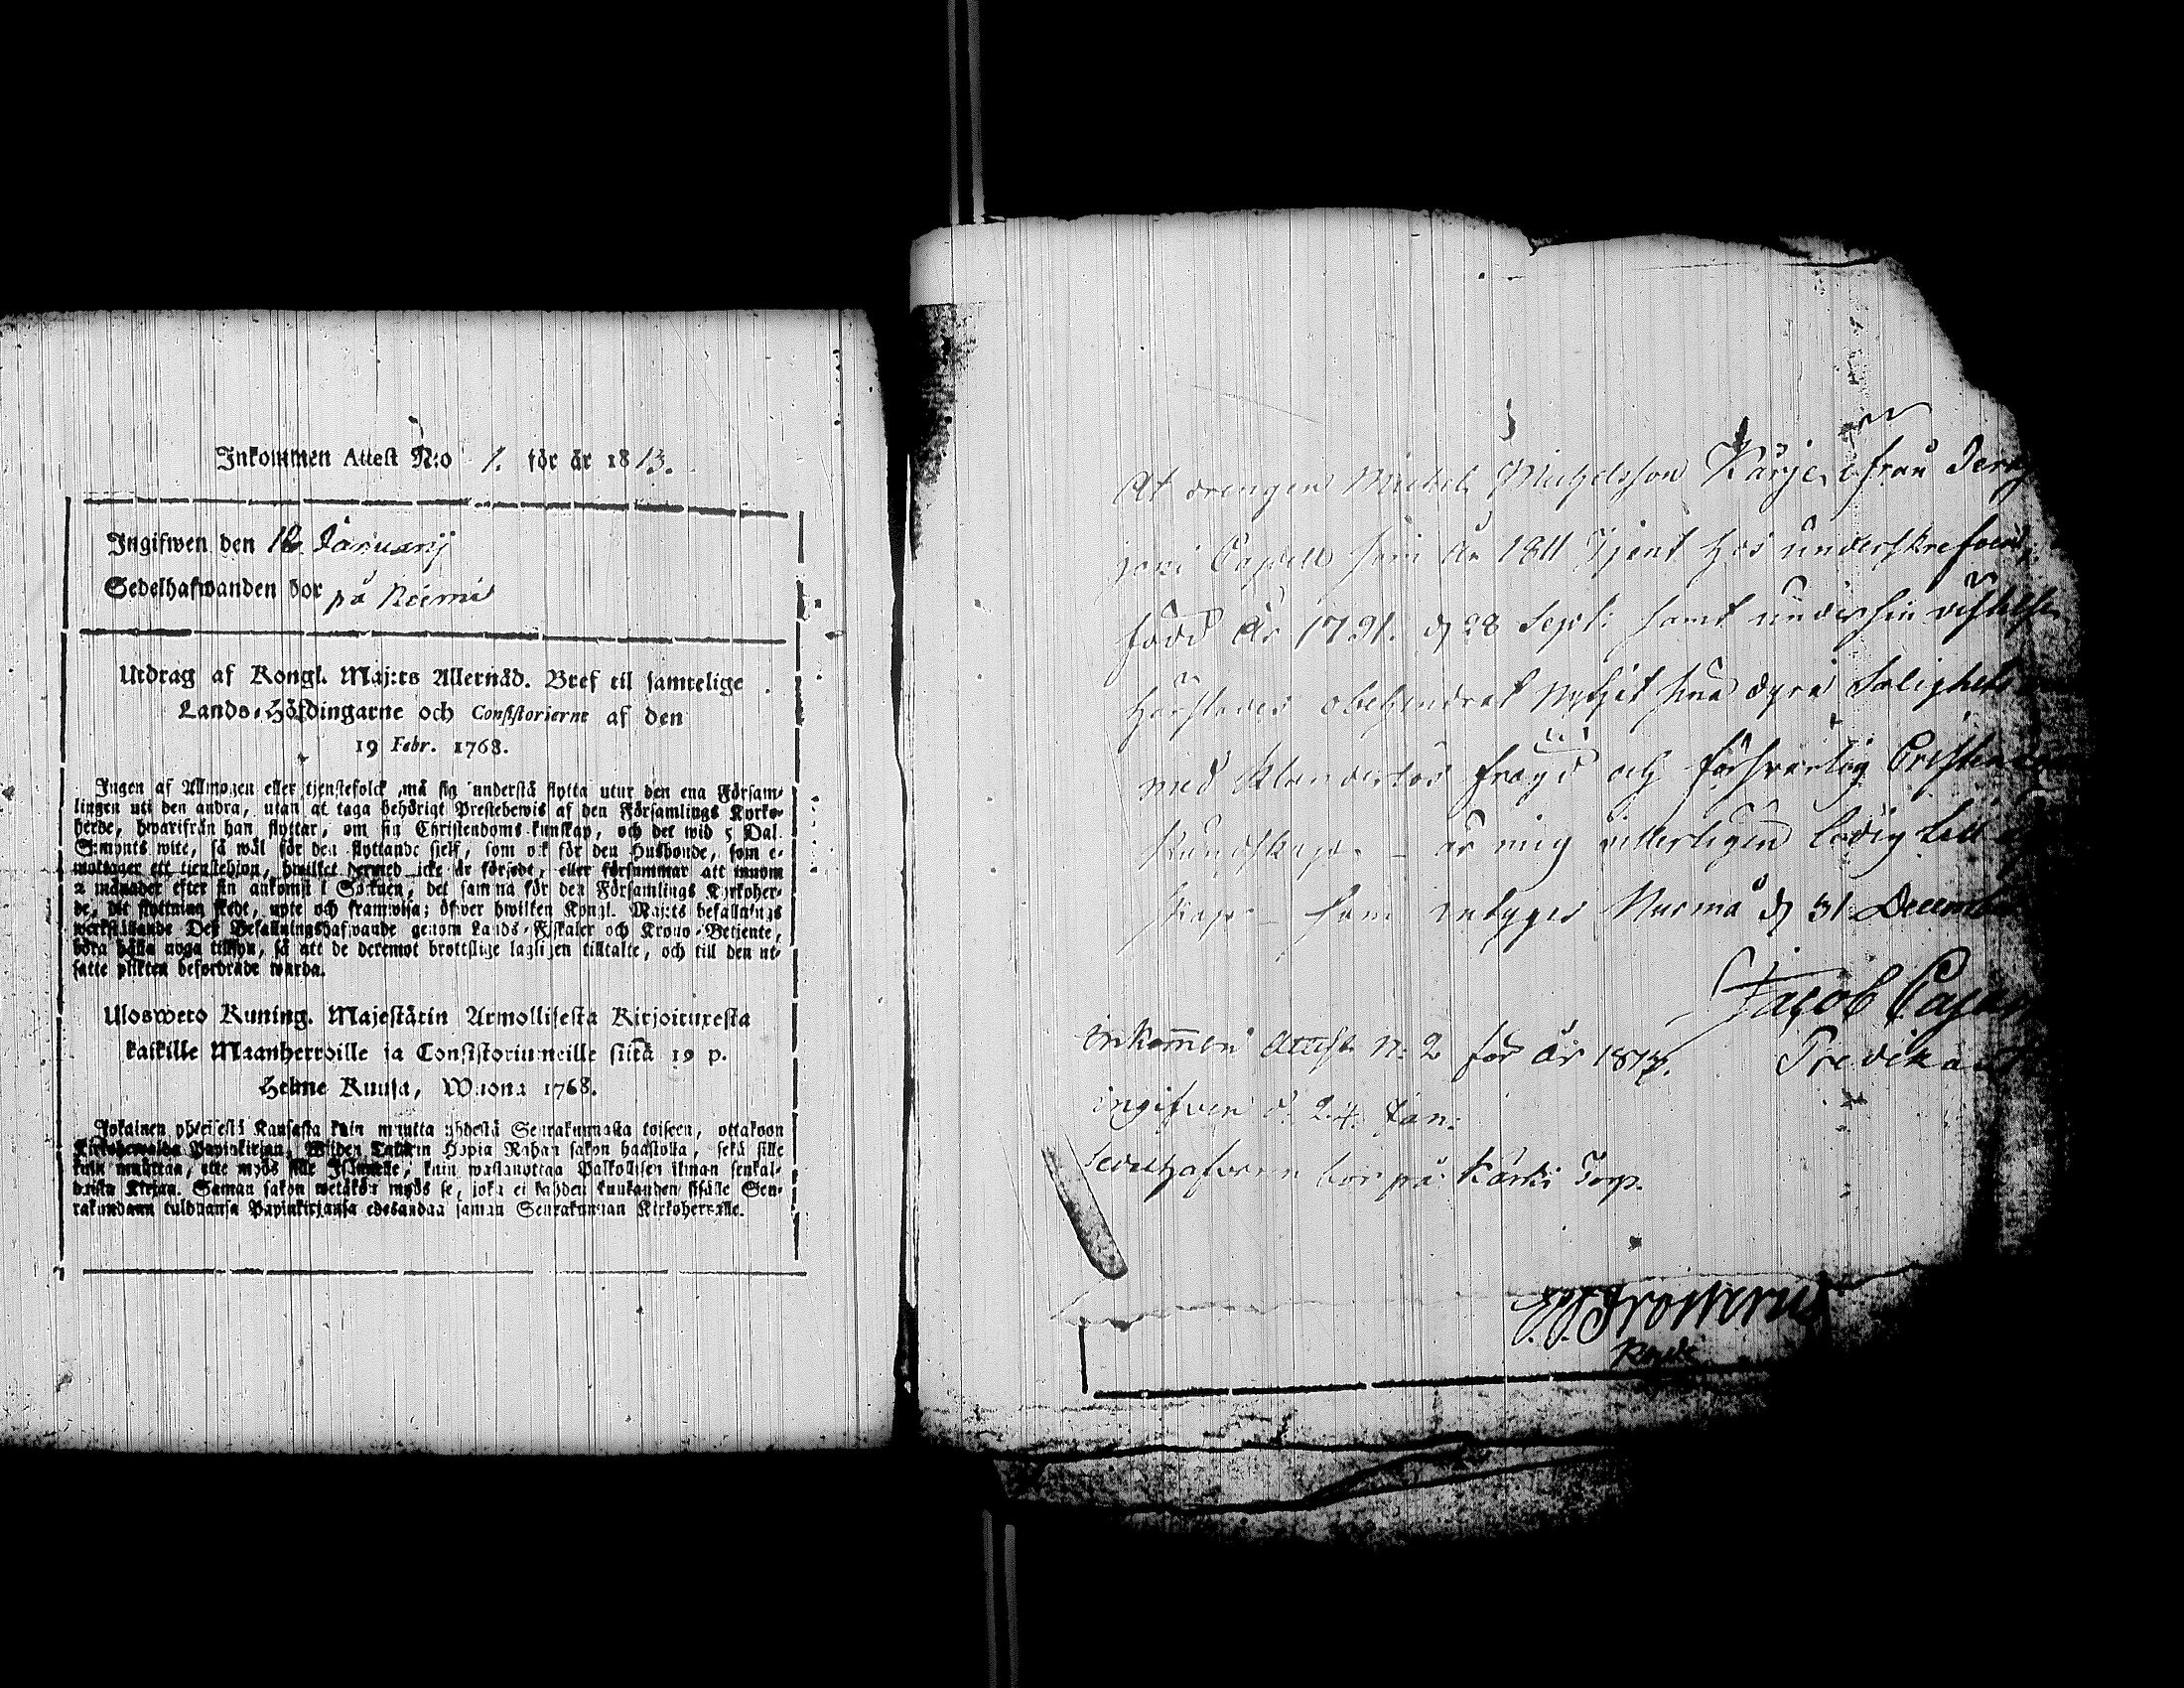 Inkommen Attest N:o 1. för år 1813.
Ingifwen den 12 Januarij
Sedelhafwanden bor på Niemi
Utdrag af Kongl. Maj:ts Allernåd. Bref til samtelige
Lands-Höfdingarne och Consistorierne af den
19 Febr. 1768.
Ingen af Allmogen eller tjenstefolck må sig understå flytta utur den ena Försam-
lingen uti den andra, utan at taga behörigt Prestebewis af den Församlings Kyrko-
herde, hwarifrån han flyttar, om sin Christendoms kunskap, och det wid 5 Dal.
S:mynts wite, så wäl för den flyttande sjelf, som ock för den Husbonde, som e-
mottager ett tjenstehjon, hwilket dermed icke är försedt, eller försummar att innom
2 månader efter sin ankomst i Socknen, det samma för den Församlings Kyrkoher-
de, dit flyttning skedt, upte och framwisa; öfwer hwilken Kongl. Maj:ts befallnings
werkställande Dess Befallningshafwande genom Lands-Fiskaler och Krono-Betjente,
böra hålla noga tilsyn, så att de deremot brottslige lagligen tilltalte, och till den ut-
satte plikten befordrade warda.
Ulosweto Kuning. Majestätin Armollisesta Kirjoituxesta
kaikille Maanherroille ja Consistoriumeille siitä 19 p.
Helme Kuusa, Wuona 1768.
Jokainen yhteisestä Kansasta kuin muutta yhdestä Seurakunnasta toiseen, ottakoon
Kirkoherralda Papinkirjan, Wijden Talarin Hopia Rahan sakon haastolla, sekä sille
kuin muuttaa, ette myös sille Isännälle, kuin wastanottaa Palkollisen ilman senkal-
daista Kirjaa. Saman sakon wetäkön myös se, joka ei kahden kuukauden sisälle Seu-
rakundaan tulduansa Papinkirjansa edesandaa saman Seurakunnan Kirkoherralle.
At drengen Michel Michelsson Kärje ifrån
Capell som År 1811 Tjent hos underskrefven,
född År 1791. d 28 Sept: samt under sin vistelse
härstädes obehindrat nytjat sina dyra Salighets
med klanderlös frägd och försvarlig Cristen
Kundskap. – är mig vitterligen ledig till
skap – som intygas Nurmo d 31 December
Jacob
Predika
inkommen Attest N: 2 för År 1813.
ingifven d. 24 Jan:
Sedelhafvaren bor på Kärki Torp.